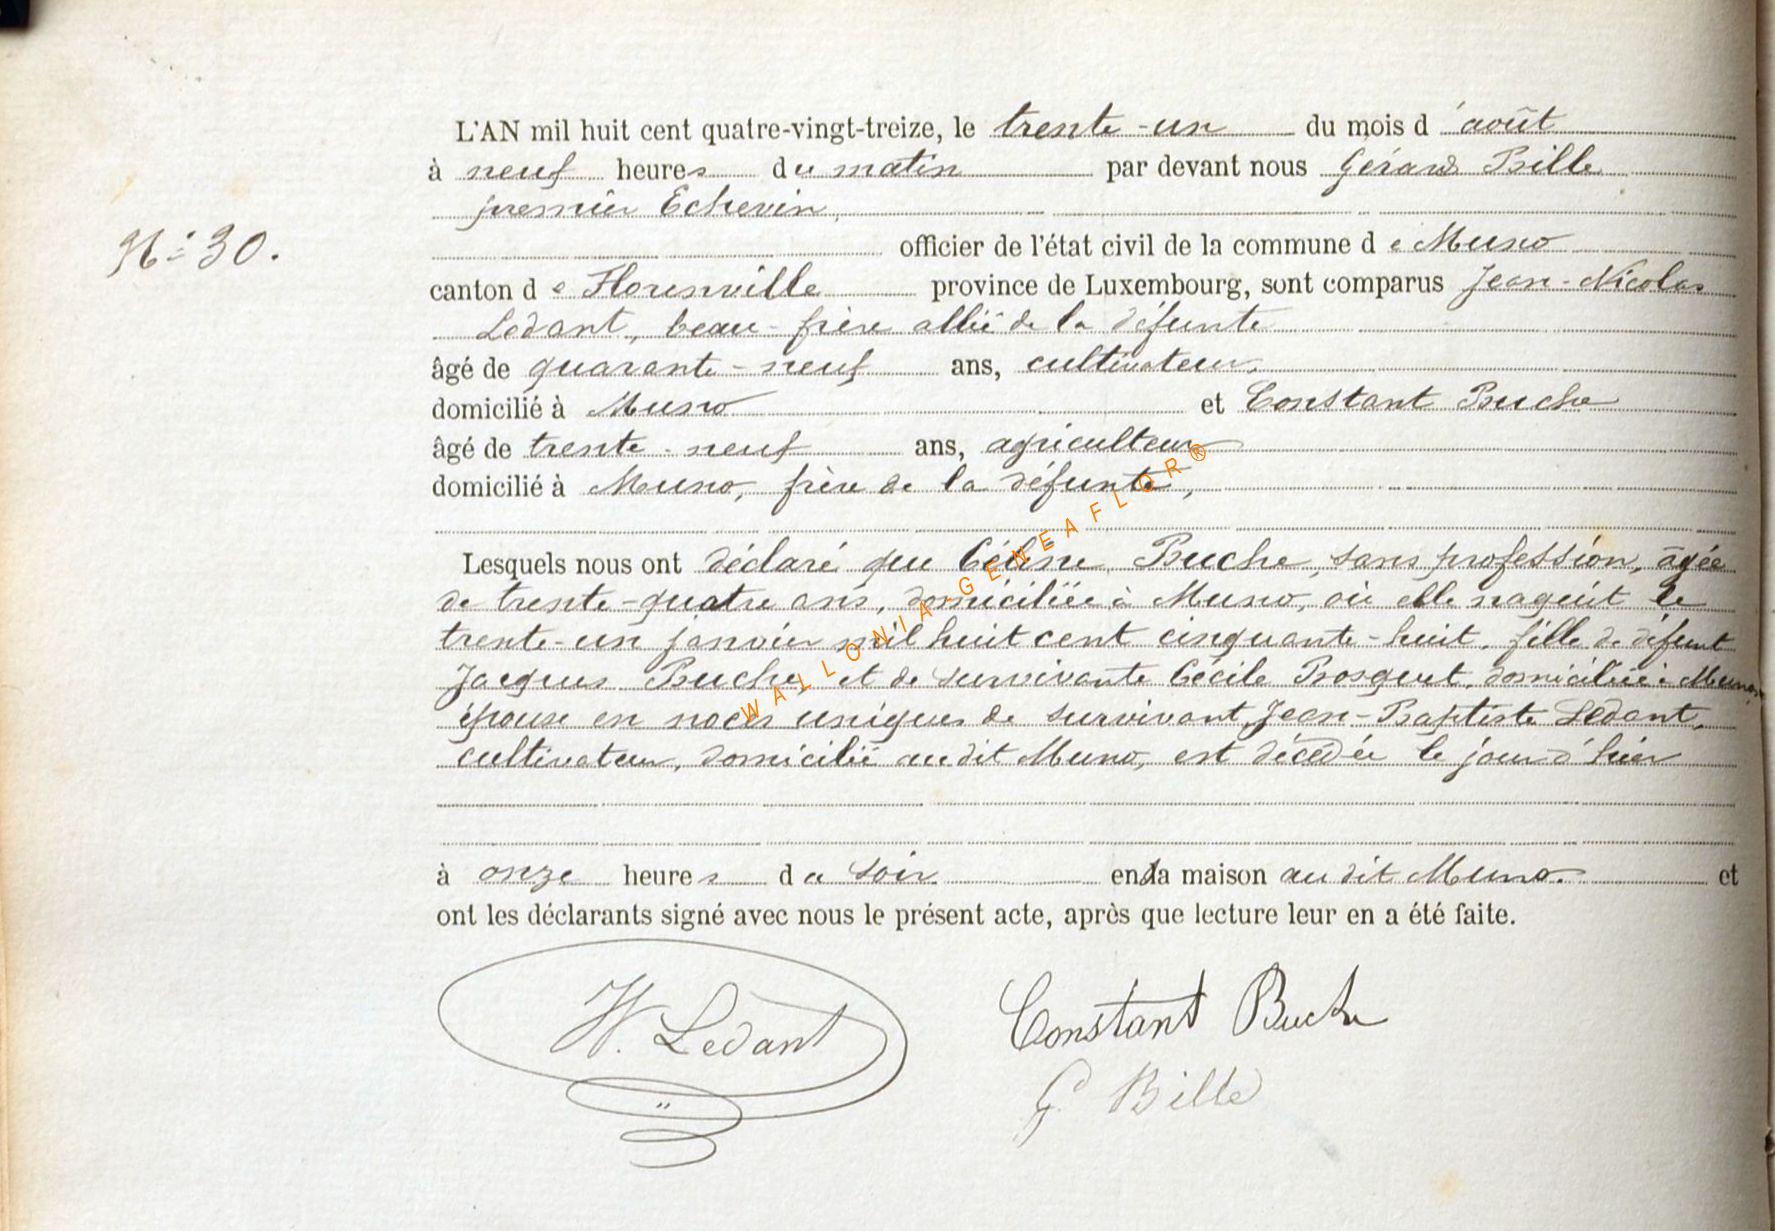 L'AN mil huit cent quatre-vingt-treize, le trente-un du mois d'août
à neuf heures du matin par devant nous Gérard Bille
premier Echevin,
N° 30.
officier de l'état civil de la commune de Muno
canton de Florenville province de Luxembourg, sont comparus Jean-Nicolas
Ledant, beau-frère allié de la défunte
âgé de quarante-neuf ans, cultivateur,
domicilié à Muno et Constant Buche
âgé de trente-neuf ans, agriculteur
domicilié à Muno, frère de la défunte,
Lesquels nous ont déclaré que Céline Buche, sans profession, âgée
de trente-quatre ans, domiciliée à Muno, où elle naquit le
trente-un janvier mil huit cent cinquante-huit, fille de défunt
Jacques Buche, et de survivante Cécile Bosquet, domiciliée à Muno,
épouse en noces uniques de survivant Jean-Baptiste Ledant,
cultivateur, domicilié audit Muno, est décédée le jour d'hier
à onze heures du soir en sa maison au dit Muno. et
ont les déclarants signé avec nous le présent acte, après que lecture leur en a été faite.
N. Ledant
Constant Buche
G. Bille
WALLONIA-GENEAFLOR®